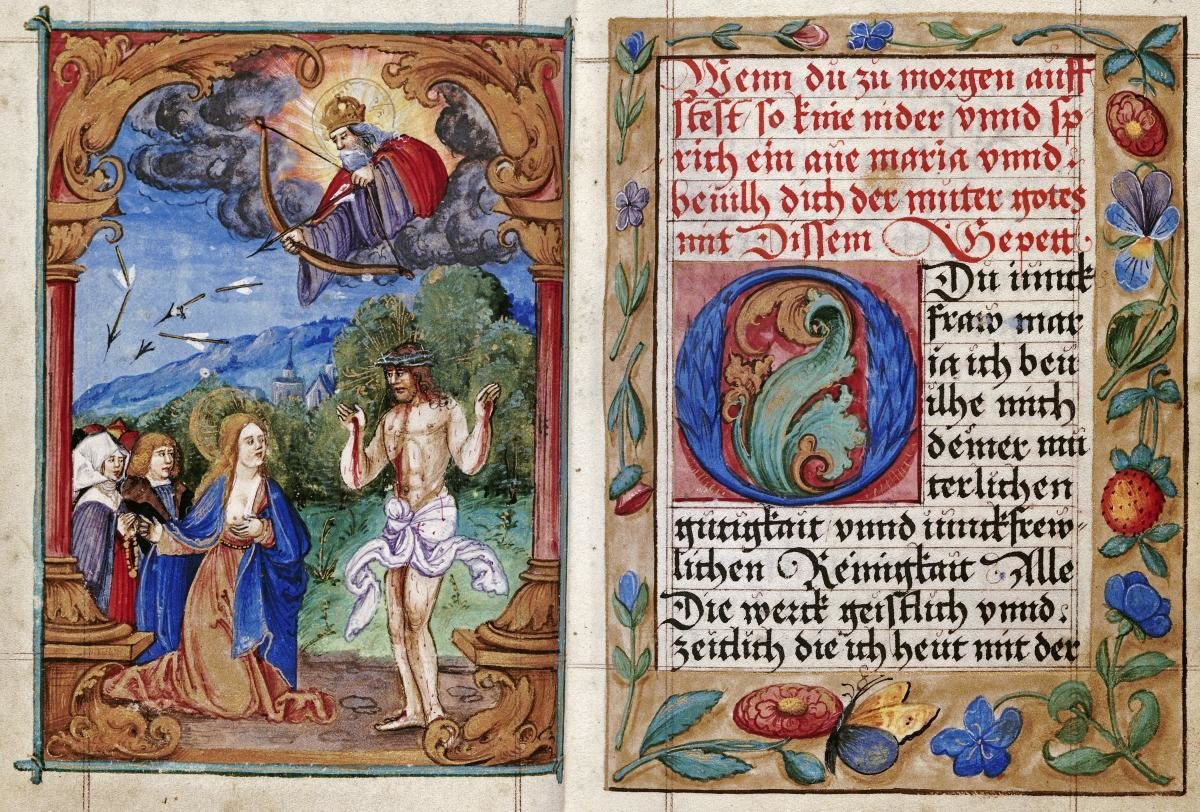 Wenn du zu morgen auff
stest / so knie nider vnnd sp
rich ein aue maria vnnd
beuilh dich der muter gotes
mit Dissem Gepett
O Du iunck
fraw mar
ia ich beu
ilhe mich
deiner mu
terlichen
gutigkait / vnnd iunckfrew
lichen Reinigkait Alle
Die werck geistlich vnnd
zeitlich die ich heut mit der